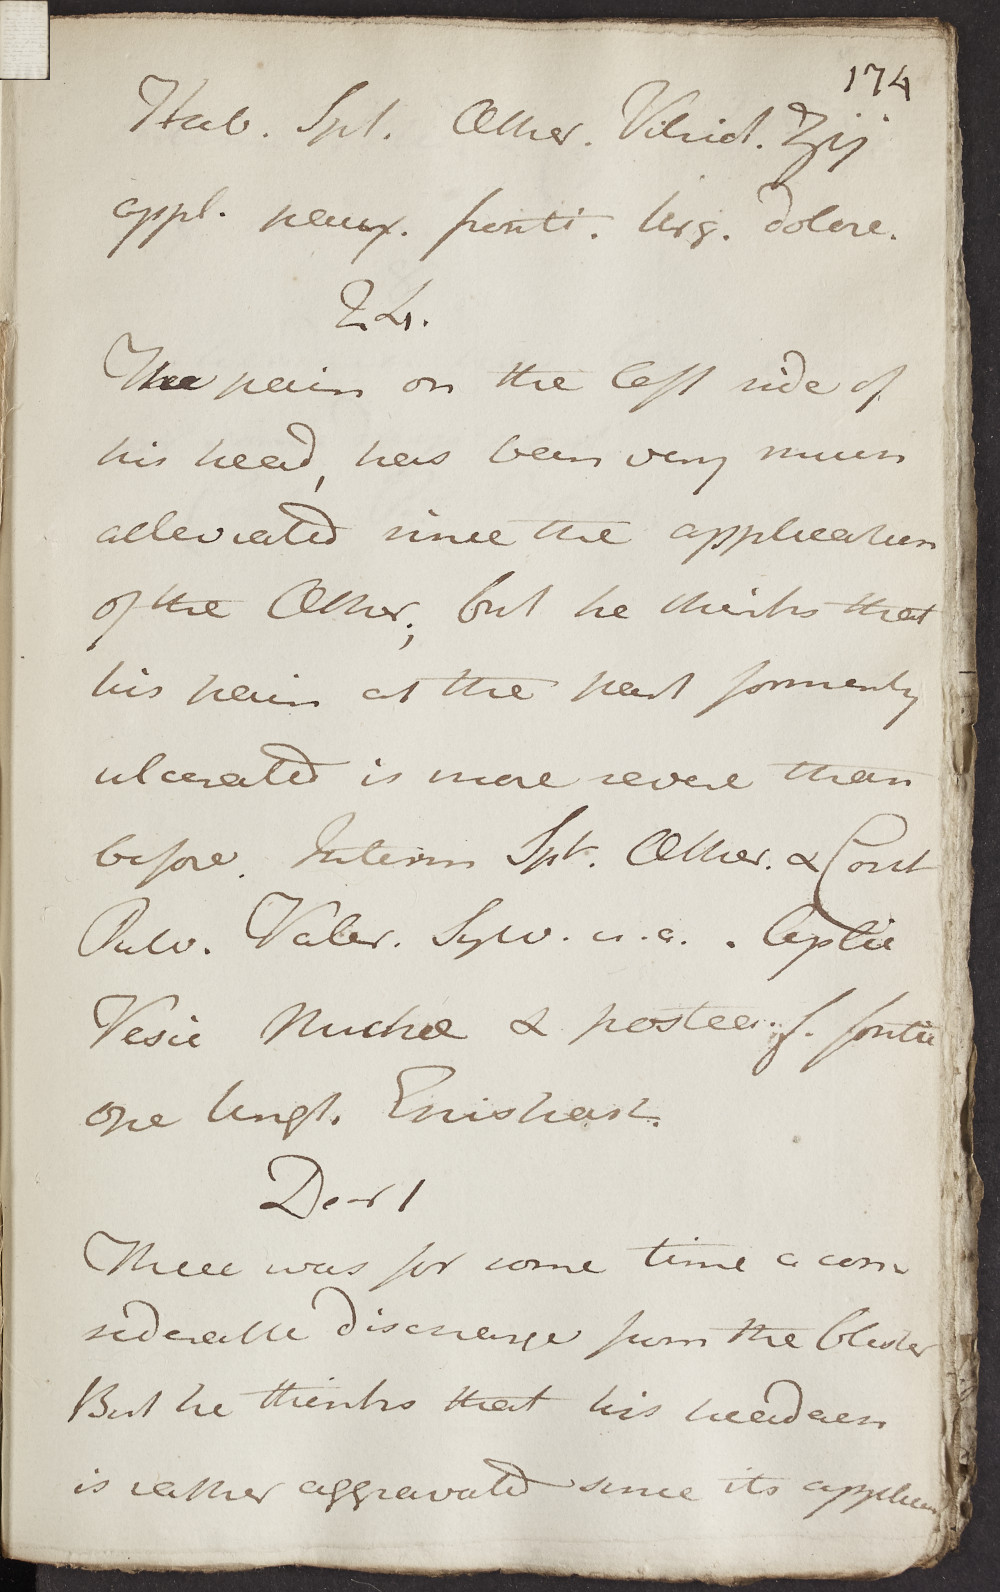 174
Hab. Spt. Æther. Vitriol. ʒij
appl. paux. fronti. Urg. dolore.
24.
The pain on the left side of
his head, has been very much
alleviated since the application
of the Æther; but he thinks that
his pain at the part formerly
ulcerated is more severe than
before. Interm Spt. Æther. & Cont
Pulv. Valer. Sylv. u.a.. Applic
Vesic Nuchæ & postea f. fontic
ope Ungt. Epispast.
Decr 1
There was for some time a con
siderable discharge from the blister
But he thinks that his headach
is rather aggravated since its